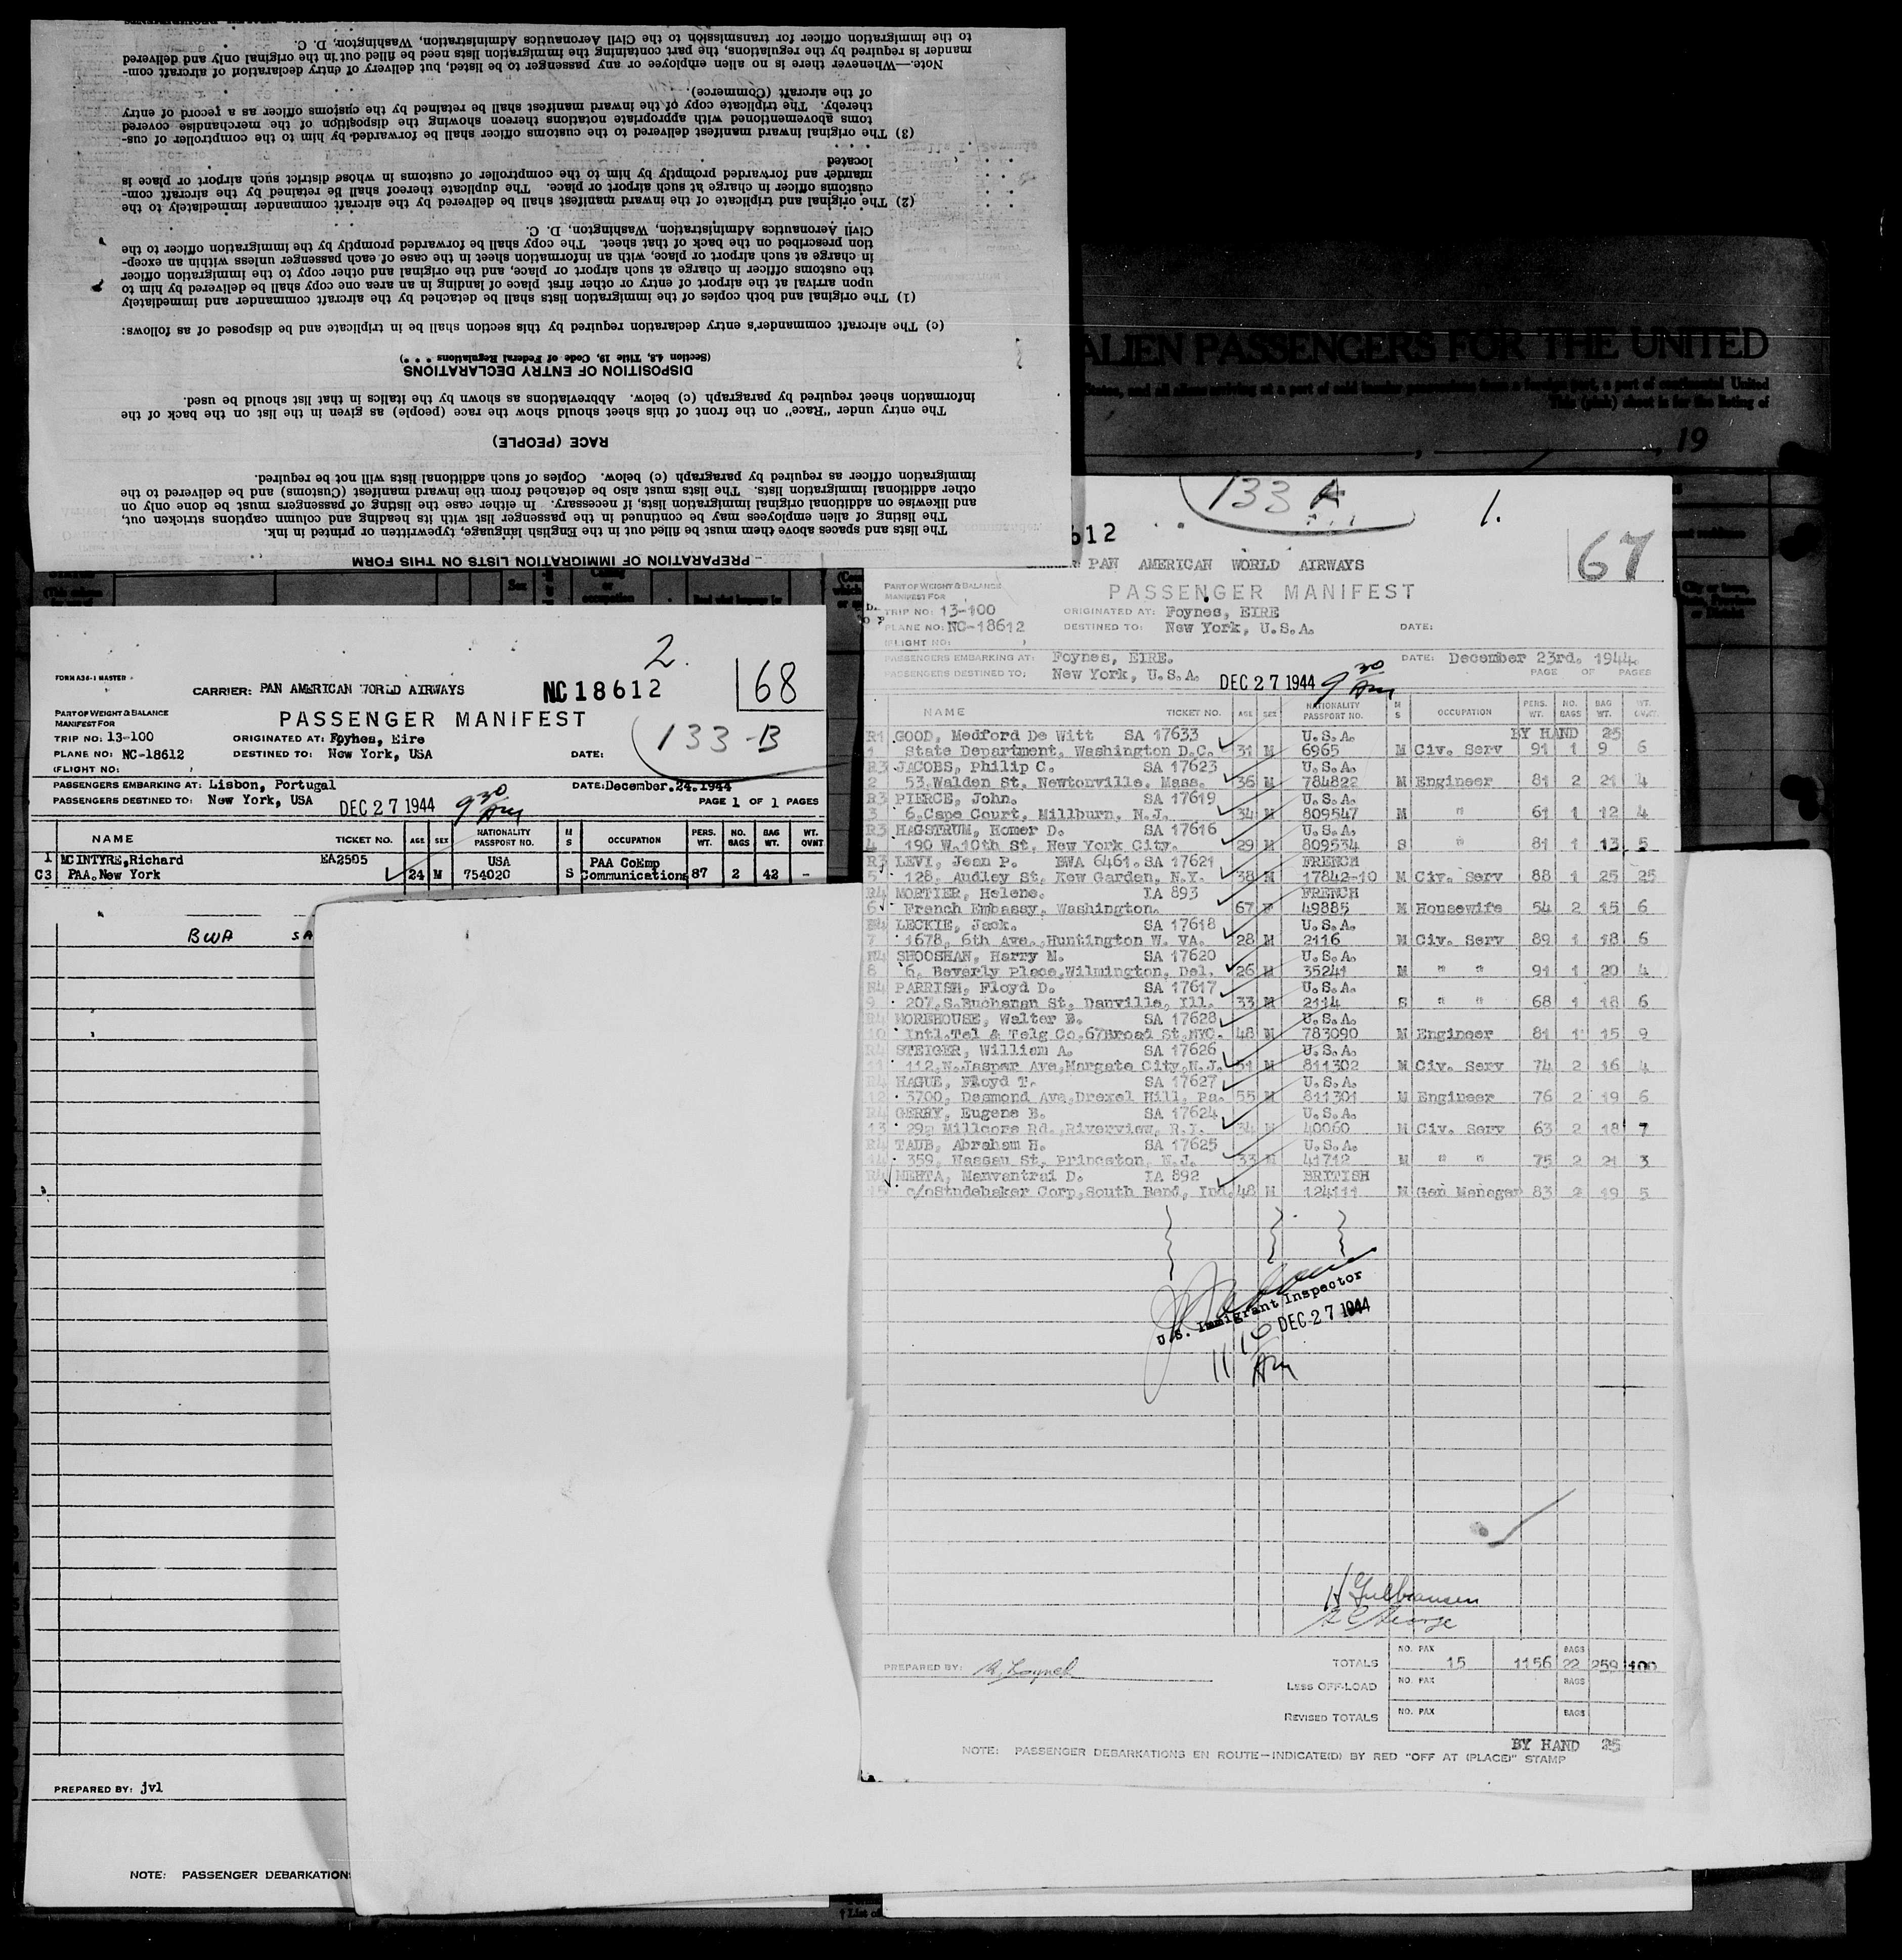 PREPARATION OF IMMIGRATION LISTS ON THIS FORM
The lists and spaces above them must be filled out in the English language, typewritten or printed in ink.
The listing of alien employees may be continued in the passenger list with its heading and column captions stricken out,
and likewise on additional original immigration lists, if necessary. In either case the listing of passengers must be done only on
other additional immigration lists. The lists must also be detached from the inward manifest (Customs) and be delivered to the
immigration officer as required by paragraph (c) below. Copies of such additional lists will not be required.
RACE (PEOPLE)
The entry under "Race" on the front of this sheet should show the race (people) as given in the list on the back of the
information sheet required by paragraph (c) below. Abbreviations as shown by the italics in that list should be used.
DISPOSITION OF ENTRY DECLARATIONS
(Section 4.8, Title 19, Code of Federal Regulations * * *)
(c) The aircraft commander's entry declaration required by this section shall be in triplicate and be disposed of as follows:
(1) The original and both copies of the immigration lists shall be detached by the aircraft commander and immediately
upon arrival at the airport of entry or other first place of landing in an area one copy shall be delivered by him to
the customs officer in charge at such airport or place, and the original and other copy to the immigration officer
in charge at such airport or place, with an information sheet in the case of each passenger unless within an excep-
tion prescribed on the back of that sheet. The copy shall be forwarded promptly by the immigration officer to the
Civil Aeronautics Administration, Washington, D. C.
(2) The original and triplicate of the inward manifest shall be delivered by the aircraft commander immediately to the
customs officer in charge at such airport or place. The duplicate thereof shall be retained by the aircraft com-
mander and forwarded promptly by him to the comptroller of customs in whose district such airport or place is
located
(3) The original inward manifest delivered to the customs officer shall be forwarded by him to the comptroller of cus-
toms abovementioned with appropriate notations thereon showing the disposition of the merchandise covered
thereby. The triplicate copy of the inward manifest shall be retained by the customs officer as a record of entry
of the aircraft (Commerce).
Note.—Whenever there is no alien employee or any passenger to be listed, but delivery of entry declaration of aircraft com-
mander is required by the regulations, the part containing the immigration lists need be filled out in the original only and delivered
to the immigration officer for transmission to the Civil Aeronautics Administration, Washington, D. C.
ALIEN PASSENGERS FOR THE UNITED
States, and all aliens arriving at a port of said insular possessions from a foreign port, a port of continental United
This (pink) sheet is for the listing of
, 19
2.
FORM A36-1 MASTER
CARRIER: PAN AMERICAN WORLD AIRWAYS NC 18612 68
PART OF WEIGHT & BALANCE
MANIFEST FOR
PASSENGER MANIFEST
133-B
TRIP NO: 13-100 ORIGINATED AT: Foynes, Eire
PLANE NO: NC-18612 DESTINED TO: New York, USA DATE:
(FLIGHT NO: )
PASSENGERS EMBARKING AT: Lisbon, Portugal DATE: December.24.1944
PASSENGERS DESTINED TO: New York, USA DEC 27 1944 9 30 AM PAGE 1 OF 1 PAGES
NAME TICKET NO. AGE SEX NATIONALITY PASSPORT NO. M S OCCUPATION PERS. WT. NO. BAGS BAG WT. WT. OVNT
1 MC INTYRE,Richard EA2505 USA PAA CoEmp
C3 PAA.New York 24 M 754020 S Communications 87 2 42 -
BWA SA
PREPARED BY: jvl
NOTE: PASSENGER DEBARKATION
133 A 1.
612
67
PAN AMERICAN WORLD AIRWAYS
PART OF WEIGHT & BALANCE
MANIFEST FOR
PASSENGER MANIFEST
TRIP NO: 13-100 ORIGINATED AT: Foynes, EIRE
PLANE NO: NC-18612 DESTINED TO: New York, U.S.A. DATE:
(FLIGHT NO: )
PASSENGERS EMBARKING AT: Foynes, EIRE. DATE: December 23rd. 1944.
PASSENGERS DESTINED TO: New York, U.S.A. DEC 27 1944 9 30 AM PAGE OF PAGES
NAME TICKET NO. AGE SEX NATIONALITY PASSPORT NO. M S OCCUPATION PERS. WT. NO. BAGS BAG WT. WT. OVNT.
R1 GOOD, Medford De Witt SA 17633 U.S.A. BY HAND 25
1 State Department, Washington D.C. 31 M 6965 M Civ. Serv 91 1 9 6
R3 JACOBS, Philip C. SA 17623 U.S.A.
2 53,Walden St, Newtonville, Mass. 36 M 784822 M Engineer 81 2 21 4
R3 PIERCE, John. SA 17619 U.S.A.
3 6,Cape Court, Millburn, N.J. 34 M 809547 M " 61 1 12 4
R3 HAGSTRUM, Homer D. SA 17616 U.S.A.
4 190 W.10th St, New York City. 29 M 809534 S " 81 1 13 5
R3 LEVI, Jean P. BWA 6461. SA 17621 FRENCH
5 128, Audley St, Kew Garden, N.Y. 38 M 17842-10 M Civ. Serv 88 1 25 25
R4 MORTIER, Helene. IA 893 FRENCH
6 French Embassy, Washington. 67 F 49885 M Housewife 54 2 15 6
R4 LECKIE, Jack. SA 17618 U.S.A.
7 1678, 6th Ave.,Huntington W. VA. 28 M 2116 M Civ. Serv 89 1 18 6
R4 SHOOSHAN, Harry M. SA 17620 U.S.A.
8 6, Beverly Place,Wilmington, Del. 26 M 35241 M " " 91 1 20 4
R4 PARRISH, Floyd D. SA 17617 U.S.A.
9 207,S.Buchanan St, Danville, Ill. 33 M 2114 S " " 68 1 18 6
R4 MOREHOUSE, Walter B. SA 17628 U.S.A.
10 Intl.Tel & Telg Co,67Broad St.NYC. 48 M 783090 M Engineer 81 1 15 9
R4 STEIGER, William A. SA 17626 U.S.A.
11 112,N.Jasper Ave,Margate City,N.J. 51 M 811302 M Civ. Serv 74 2 16 4
R4 HAGUE, Floyd T. SA 17627 U.S.A.
12 3700, Desmond Ave,Drexel Hill, Pa. 55 M 811301 M Engineer 76 2 19 6
R4 GERRY, Eugene B. SA 17624 U.S.A.
13 29, Millcors Rd.,Riverview, R.I. 34 M 40060 M Civ. Serv 63 2 18 7
R4 TAUB, Abraham H. SA 17625 U.S.A.
14 359, Nassau St, Princeton, N.J. 33 M 41712 M " " 75 2 21 3
R4 MEHTA, Manvantrai D. IA 892 BRITISH
15 c/oStudebaker Corp,South Bend, Ind. 48 M 124111 M Gen Manager 83 2 19 5
U.S. Immigrant Inspector
DEC 27 1944
11 10 AM
H Gulbransen
R C George
PREPARED BY:
TOTALS NO. PAX 15 1156 BAGS 22 259 100
LESS OFF-LOAD NO. PAX BAGS
REVISED TOTALS NO. PAX BAGS
BY HAND 25
NOTE: PASSENGER DEBARKATIONS EN ROUTE—INDICATE(D) BY RED "OFF AT (PLACE)" STAMP